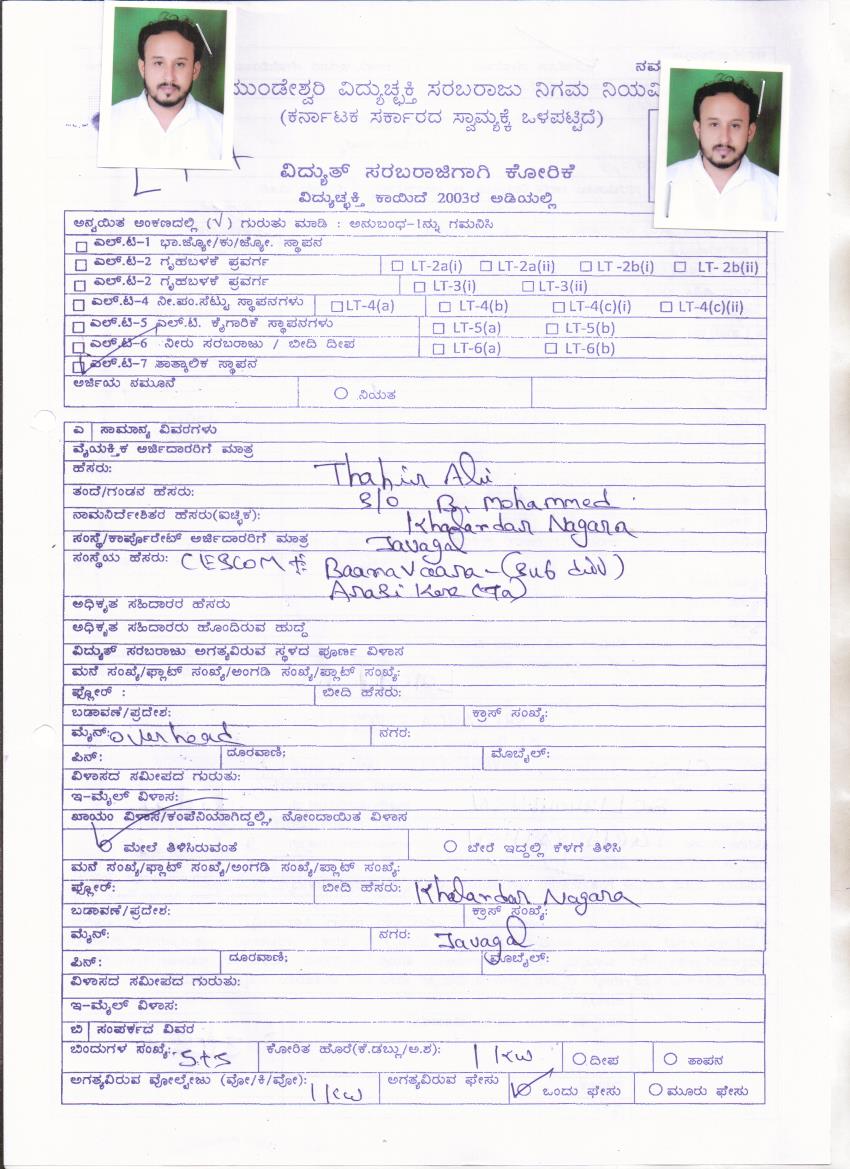 ನಮ
ಮುಂಡೇಶ್ವರಿ ವಿದ್ಯುಚ್ಛಕ್ತಿ ಸರಬರಾಜು ನಿಗಮ ನಿಯಮಿ
(ಕರ್ನಾಟಕ ಸರ್ಕಾರದ ಸ್ವಾಮ್ಯಕ್ಕೆ ಒಳಪಟ್ಟಿದೆ)
ವಿದ್ಯುತ್ ಸರಬರಾಜಿಗಾಗಿ ಕೋರಿಕೆ
ವಿದ್ಯುಚ್ಛಕ್ತಿ ಕಾಯಿದೆ 2003ರ ಅಡಿಯಲ್ಲಿ
ಅನ್ವಯಿತ ಅಂಕಣದಲ್ಲಿ (√) ಗುರುತು ಮಾಡಿ : ಅನುಬಂಧ-1ನ್ನು ಗಮನಿಸಿ
ಎಲ್.ಟಿ-1 ಭಾ.ಜ್ಯೋ/ಕು/ಜ್ಯೋ. ಸ್ಥಾಪನ
ಎಲ್.ಟಿ-2 ಗೃಹಬಳಕೆ ಪ್ರವರ್ಗ LT-2a(i) LT-2a(ii) LT -2b(i) LT- 2b(ii)
ಎಲ್.ಟಿ-2 ಗೃಹಬಳಕೆ ಪ್ರವರ್ಗ LT-3(i) LT-3(ii)
ಎಲ್.ಟಿ-4 ನೀ.ಪಂ.ಸೆಟ್ಟು ಸ್ಥಾಪನಗಳು LT-4(a) LT-4(b) LT-4(c)(i) LT-4(c)(ii)
ಎಲ್.ಟಿ-5 ಎಲ್.ಟಿ. ಕೈಗಾರಿಕೆ ಸ್ಥಾಪನಗಳು LT-5(a) LT-5(b)
ಎಲ್.ಟಿ-6 ನೀರು ಸರಬರಾಜು / ಬೀದಿ ದೀಪ LT-6(a) LT-6(b)
ಎಲ್.ಟಿ-7 ತಾತ್ಕಾಲಿಕ ಸ್ಥಾಪನ
ಅರ್ಜಿಯ ನಮೂನೆ ನಿಯತ
ಎ ಸಾಮಾನ್ಯ ವಿವರಗಳು
ವೈಯಕ್ತಿಕ ಅರ್ಜಿದಾರರಿಗೆ ಮಾತ್ರ
ಹೆಸರು: Thahir Ali
ತಂದೆ/ಗಂಡನ ಹೆಸರು: S/O B. Mohammed
ನಾಮನಿರ್ದೇಶಿತರ ಹೆಸರು(ಐಚ್ಛಿಕ): Khalandar Nagara
ಸಂಸ್ಥೆ/ಕಾರ್ಪೊರೇಟ್ ಅರ್ಜಿದಾರರಿಗೆ ಮಾತ್ರ Javagal
ಸಂಸ್ಥೆಯ ಹೆಸರು: Baanavaara-(sub div)
Arasi Kere (Ta)
ಅಧಿಕೃತ ಸಹಿದಾರರ ಹೆಸರು
ಅಧಿಕೃತ ಸಹಿದಾರರು ಹೊಂದಿರುವ ಹುದ್ದೆ
ವಿದ್ಯುತ್ ಸರಬರಾಜು ಅಗತ್ಯವಿರುವ ಸ್ಥಳದ ಪೂರ್ಣ ವಿಳಾಸ
ಮನೆ ಸಂಖ್ಯೆ/ಫ್ಲಾಟ್ ಸಂಖ್ಯೆ/ಅಂಗಡಿ ಸಂಖ್ಯೆ/ಪ್ಲಾಟ್ ಸಂಖ್ಯೆ:
ಫ್ಲೋರ್ : ಬೀದಿ ಹೆಸರು:
ಬಡಾವಣೆ/ಪ್ರದೇಶ: ಕ್ರಾಸ್ ಸಂಖ್ಯೆ:
ಮೈನ್: overhead ನಗರ:
ಪಿನ್: ದೂರವಾಣಿ; ಮೊಬೈಲ್:
ವಿಳಾಸದ ಸಮೀಪದ ಗುರುತು:
ಇ-ಮೈಲ್ ವಿಳಾಸ:
ಖಾಯಂ ವಿಳಾಸ/ಕಂಪೆನಿಯಾಗಿದ್ದಲ್ಲಿ, ನೋಂದಾಯಿತ ವಿಳಾಸ
ಮೇಲೆ ತಿಳಿಸಿರುವಂತೆ ಬೇರೆ ಇದ್ದಲ್ಲಿ ಕೆಳಗೆ ತಿಳಿಸಿ
ಮನೆ ಸಂಖ್ಯೆ/ಫ್ಲಾಟ್ ಸಂಖ್ಯೆ/ಅಂಗಡಿ ಸಂಖ್ಯೆ/ಪ್ಲಾಟ್ ಸಂಖ್ಯೆ:
ಫ್ಲೋರ್: ಬೀದಿ ಹೆಸರು: Khalandar Nagara
ಬಡಾವಣೆ/ಪ್ರದೇಶ: ಕ್ರಾಸ್ ಸಂಖ್ಯೆ:
ಮೈನ್: ನಗರ: Javagal
ಪಿನ್: ದೂರವಾಣಿ; ಮೊಬೈಲ್:
ವಿಳಾಸದ ಸಮೀಪದ ಗುರುತು:
ಇ-ಮೈಲ್ ವಿಳಾಸ:
ಬಿ ಸಂಪರ್ಕದ ವಿವರ
ಬಿಂದುಗಳ ಸಂಖ್ಯೆ: 5+5 ಕೋರಿತ ಹೊರೆ(ಕೆ.ಡಬ್ಲು/ಅ.ಶ): 1 KW ದೀಪ ತಾಪನ
ಅಗತ್ಯವಿರುವ ವೋಲ್ಟೇಜು (ವೋ/ಕಿ/ವೋ): 1 KW ಅಗತ್ಯವಿರುವ ಫೇಸು ಒಂದು ಫೇಸು ಮೂರು ಫೇಸು